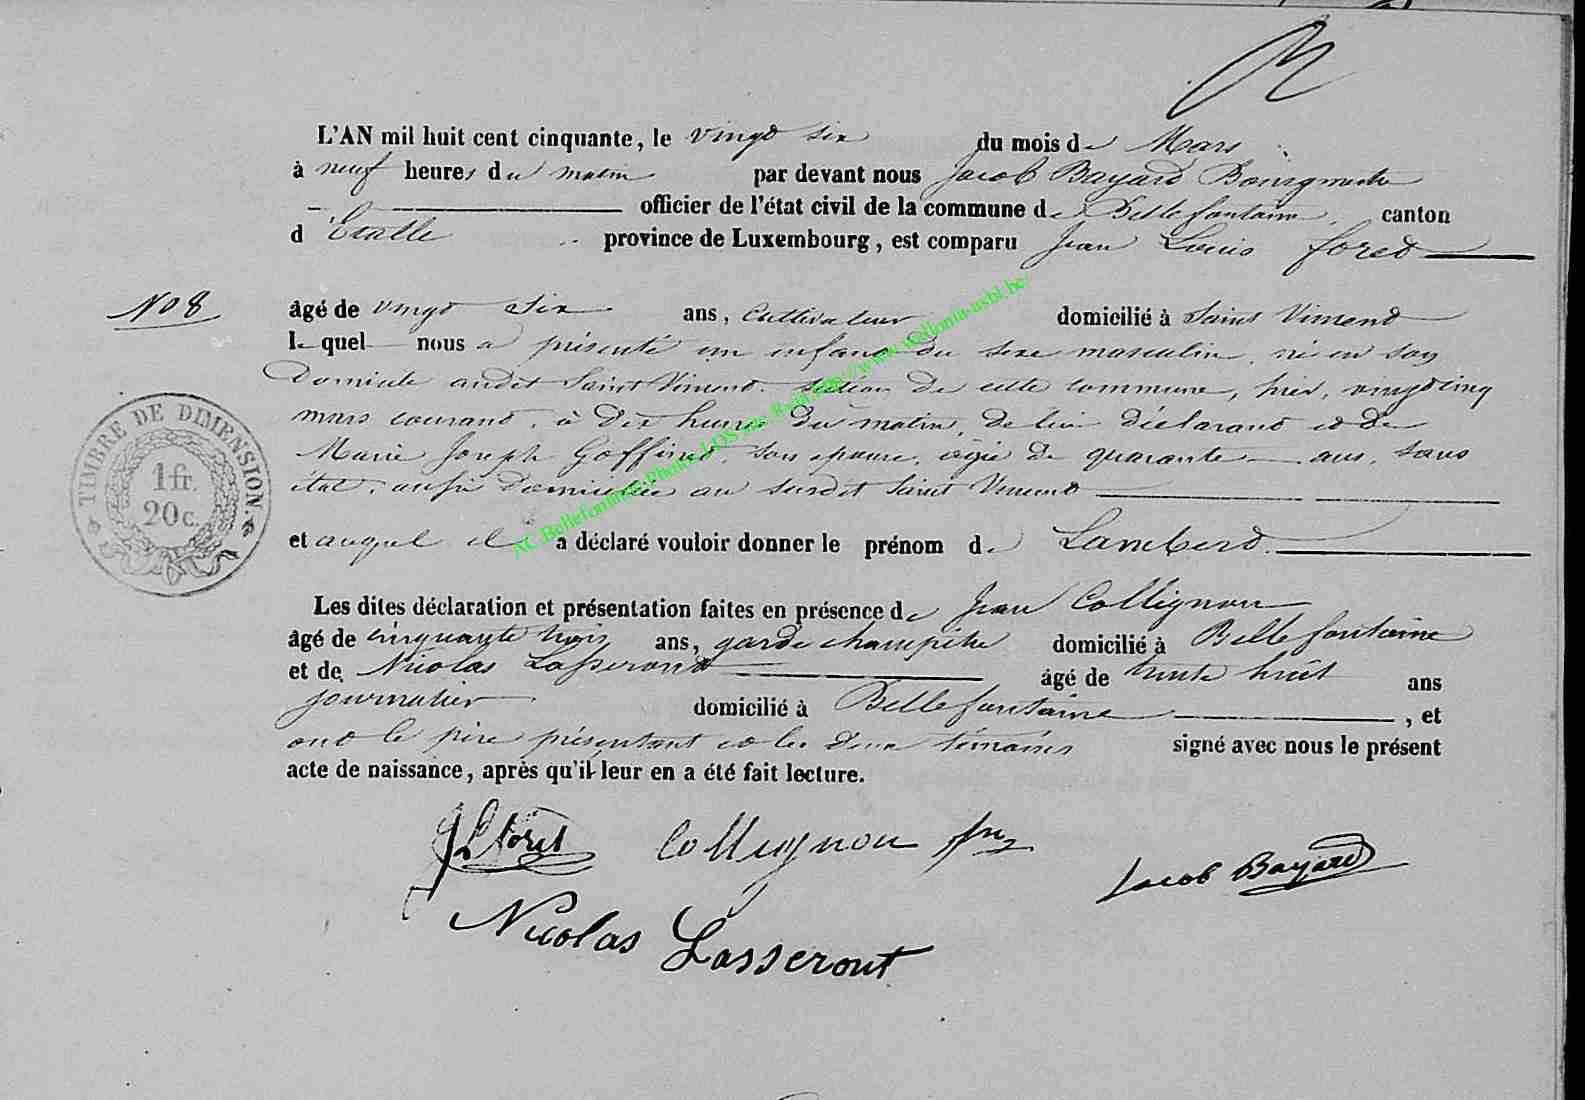 L'AN mil huit cent cinquante, le vingt six du mois de Mars
à neuf heures du matin par devant nous Jacob Bayard Bourgmestre
officier de l'état civil de la commune de Bellefontaine, canton
d'Etalle province de Luxembourg, est comparu Jean Louis foret
N° 8
âgé de vingt six ans, Cultivateur domicilié à Saint Vincent
lequel nous a présenté un enfant du sexe masculin, né en son
Domicile audit Saint Vincent, section de cette commune, hier, vingt cinq
mars courant, à dix heures du matin, de lui déclarant et de
Marie Joseph Goffinet, son épouse, âgée de quarante ans sans
état, aussi domiciliée au susdit Saint Vincent
et auquel il a déclaré vouloir donner le prénom de Lambert
Les dites déclaration et présentation faites en présence de Jean Collignon
âgé de cinquante trois ans, garde champêtre domicilié à Bellefontaine
et de Nicolas Lasseront âgé de trente huit ans
journalier domicilié à Bellefontaine, et
ont le père présentant et les deux témoins signé avec nous le présent
acte de naissance, après qu'il leur en a été fait lecture.
TIMBRE DE DIMENSION.
1 fr.
20 c.
JL foret Collignon
Jacob Bayard
Nicolas Lasseront